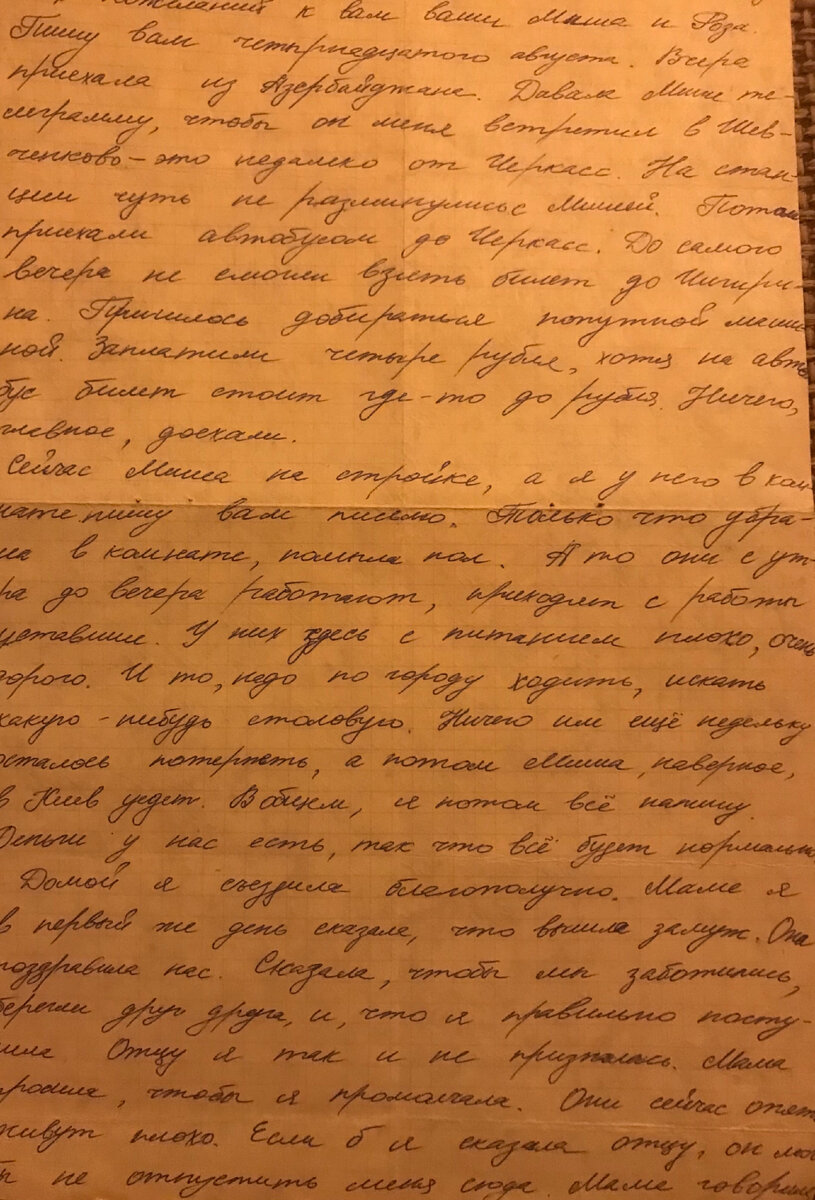 пожеланий к вам ваши Миша и Роза.
Пишу вам четырнадцатого августа. Вчера
приехала из Азербайджана. Давала Мише те-
леграмму, чтобы он меня встретил в Шев-
ченково – это недалеко от Черкасс. На стан-
ции чуть не разминулись с Мишей. Потом
приехали автобусом до Черкасс. До самого
вечера не смогли взять билет до Чигири-
на. Пришлось добираться попутной маши-
ной. Заплатили четыре рубля, хотя на авто
бус билет стоит где-то до рубля. Ничего,
главное, доехали.
Сейчас Миша на стройке, а я у него в ком-
нате пишу вам письмо. Только что убра-
ла в комнате, помыла пол. А то они с ут-
ра до вечера работают, приходят с работы
уставшие. У них здесь с питанием плохо, очень
дорого. И то, надо по городу ходить, искать
какую-нибудь столовую. Ничего им ещё недельку
осталось потерпеть, а потом Миша, наверное,
в Киев уедет. Вобщем, я потом всё напишу.
Деньги у нас есть, так что всё будет нормально.
Домой я съездила благополучно. Маме я
в первый же день сказала, что вышла замуж. Она
поздравила нас. Сказала, чтобы мы заботились,
берегли друг друга, и, что я правильно посту-
пила. Отцу я так и не призналась. Мама
просила, чтобы я промолчала. Они сейчас опять
живут плохо. Если б я сказала отцу, он мог
бы не отпустить меня сюда. Маме говорила